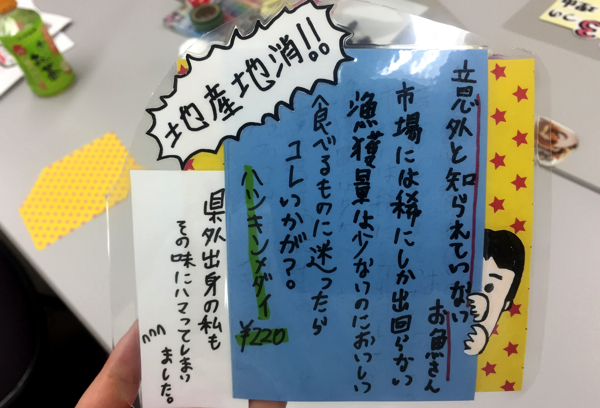 地産地消!!
意外と知られていない
お魚さん
市場には稀にしか出回らない
漁獲量は少ないのにおいしい
食べるものに迷ったら
コレいかが?。
ハシキンメダイ
¥220
県外出身の私も
その味にハマってしまい
ました。